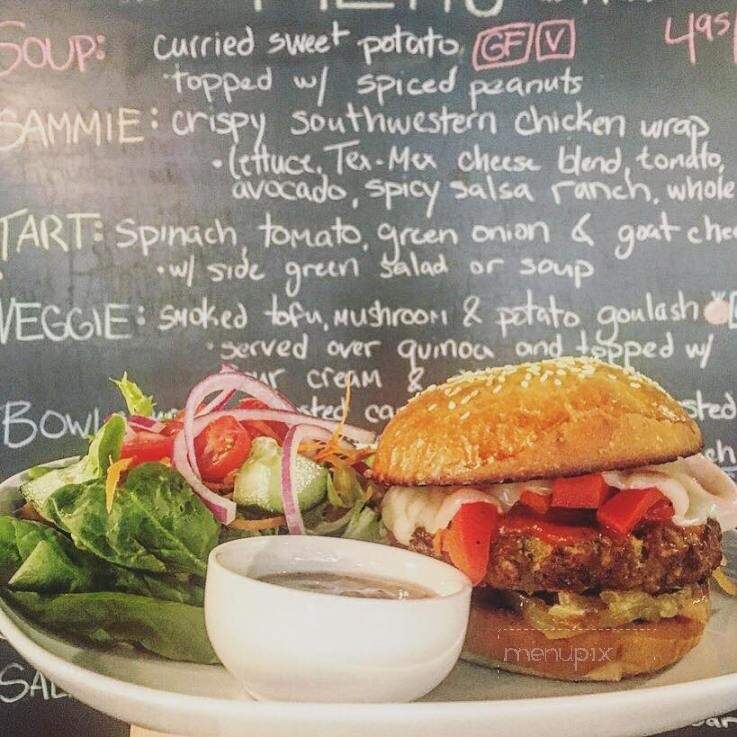 MENU
SOUP: curried sweet potato GF V 4.95
topped w/ spiced peanuts
SAMMIE: crispy southwestern chicken wrap
• lettuce, Tex-Mex cheese blend, tomato,
avocado, spicy salsa ranch, whole
TART: spinach, tomato, green onion & goat chee
• w/ side green salad or soup
VEGGIE: smoked tofu, mushroom & potato goulash
• served over quinoa and topped w/
ur cream &
BOWL
sted
menupix
SAL